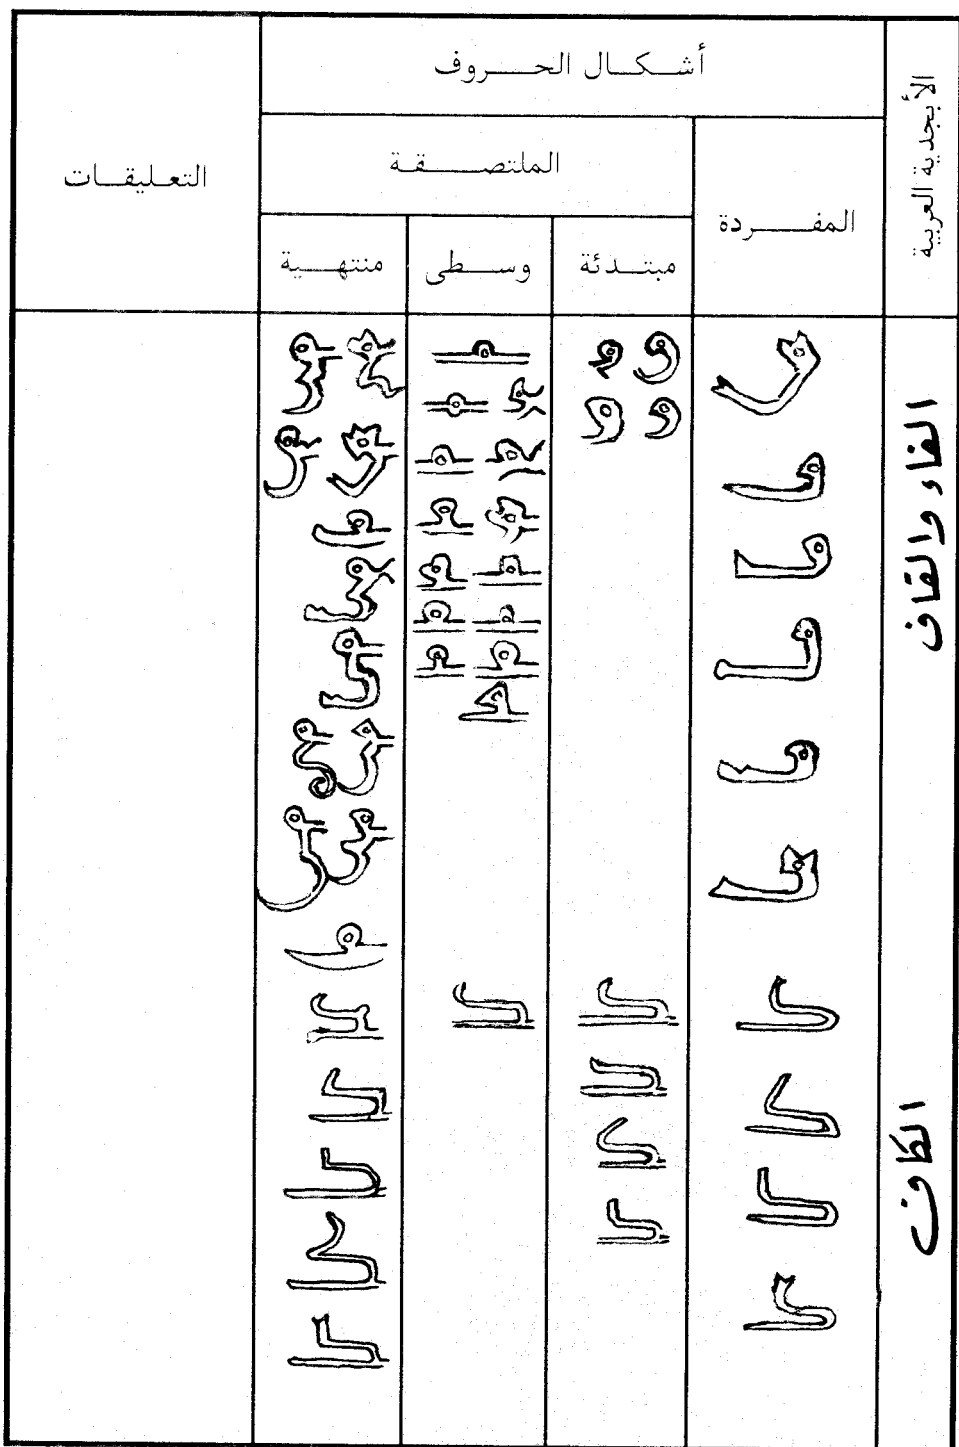 الأبجدية العربية
أشكال الحروف
المفردة
الملتصقة
مبتدئة
وسطى
منتهية
التعليقات
الفاء والقاف
الكاف